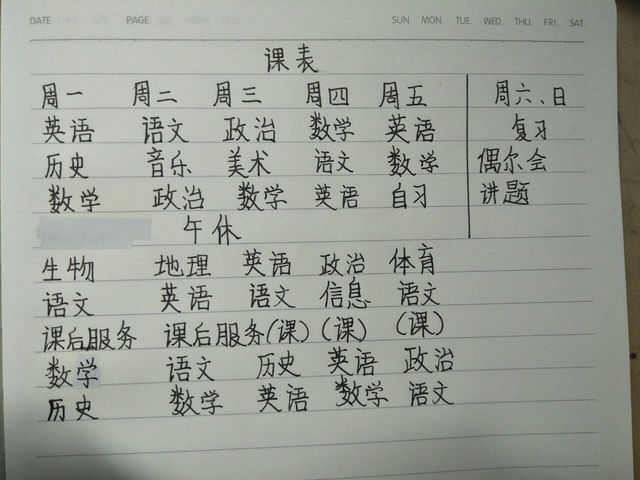 DATE. PAGE. SUN. MON. TUE. WED. THU. FRI. SAT.
课表
周一 周二 周三 周四 周五 周六、日
英语 语文 政治 数学 英语 复习
历史 音乐 美术 语文 数学 偶尔会
数学 政治 数学 英语 自习 讲题
午休
生物 地理 英语 政治 体育
语文 英语 语文 信息 语文
课后服务 课后服务(课) (课) (课)
数学 语文 历史 英语 政治
历史 数学 英语 数学 语文